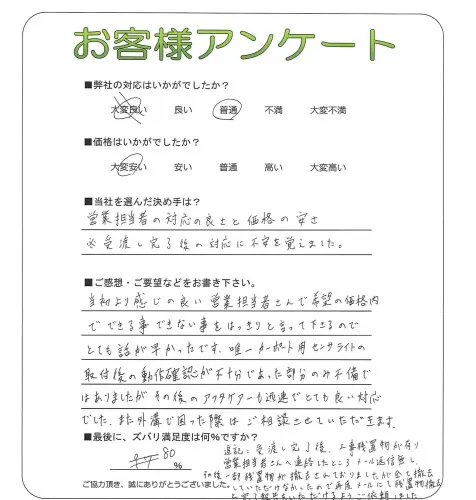 お客様アンケート
■弊社の対応はいかがでしたか？
大変良い 良い 普通 不満 大変不満
■価格はいかがでしたか？
大変安い 安い 普通 高い 大変高い
■当社を選んだ決め手は？
営業担当者の対応の良さと価格の安さ
※受渡し完了後の対応に不安を覚えました。
■ご感想・ご要望などをお書き下さい。
当初より感じの良い営業担当者さんで希望の価格内
でできる事できない事をはっきりと言って下さるので
とても話が早かったです。唯一カーポート用センサライトの
取付後の動作確認が不十分であった部分のみ不備で
はありましたがその後のアフターも迅速でとても良い対応
でした。また外溝で困った際はご相談させていただきます。
■最後に、ズバリ満足度は何%ですか？
80
%
追記：受渡し完了後、工事残置物が有り
営業担当者さんへ連絡したところメール返信無し、
その後一部残置物が撤去されておりましたが全て撤去
していただけなかったので再度メールにて残置物撤去
ご協力頂き、誠にありがとうございました。